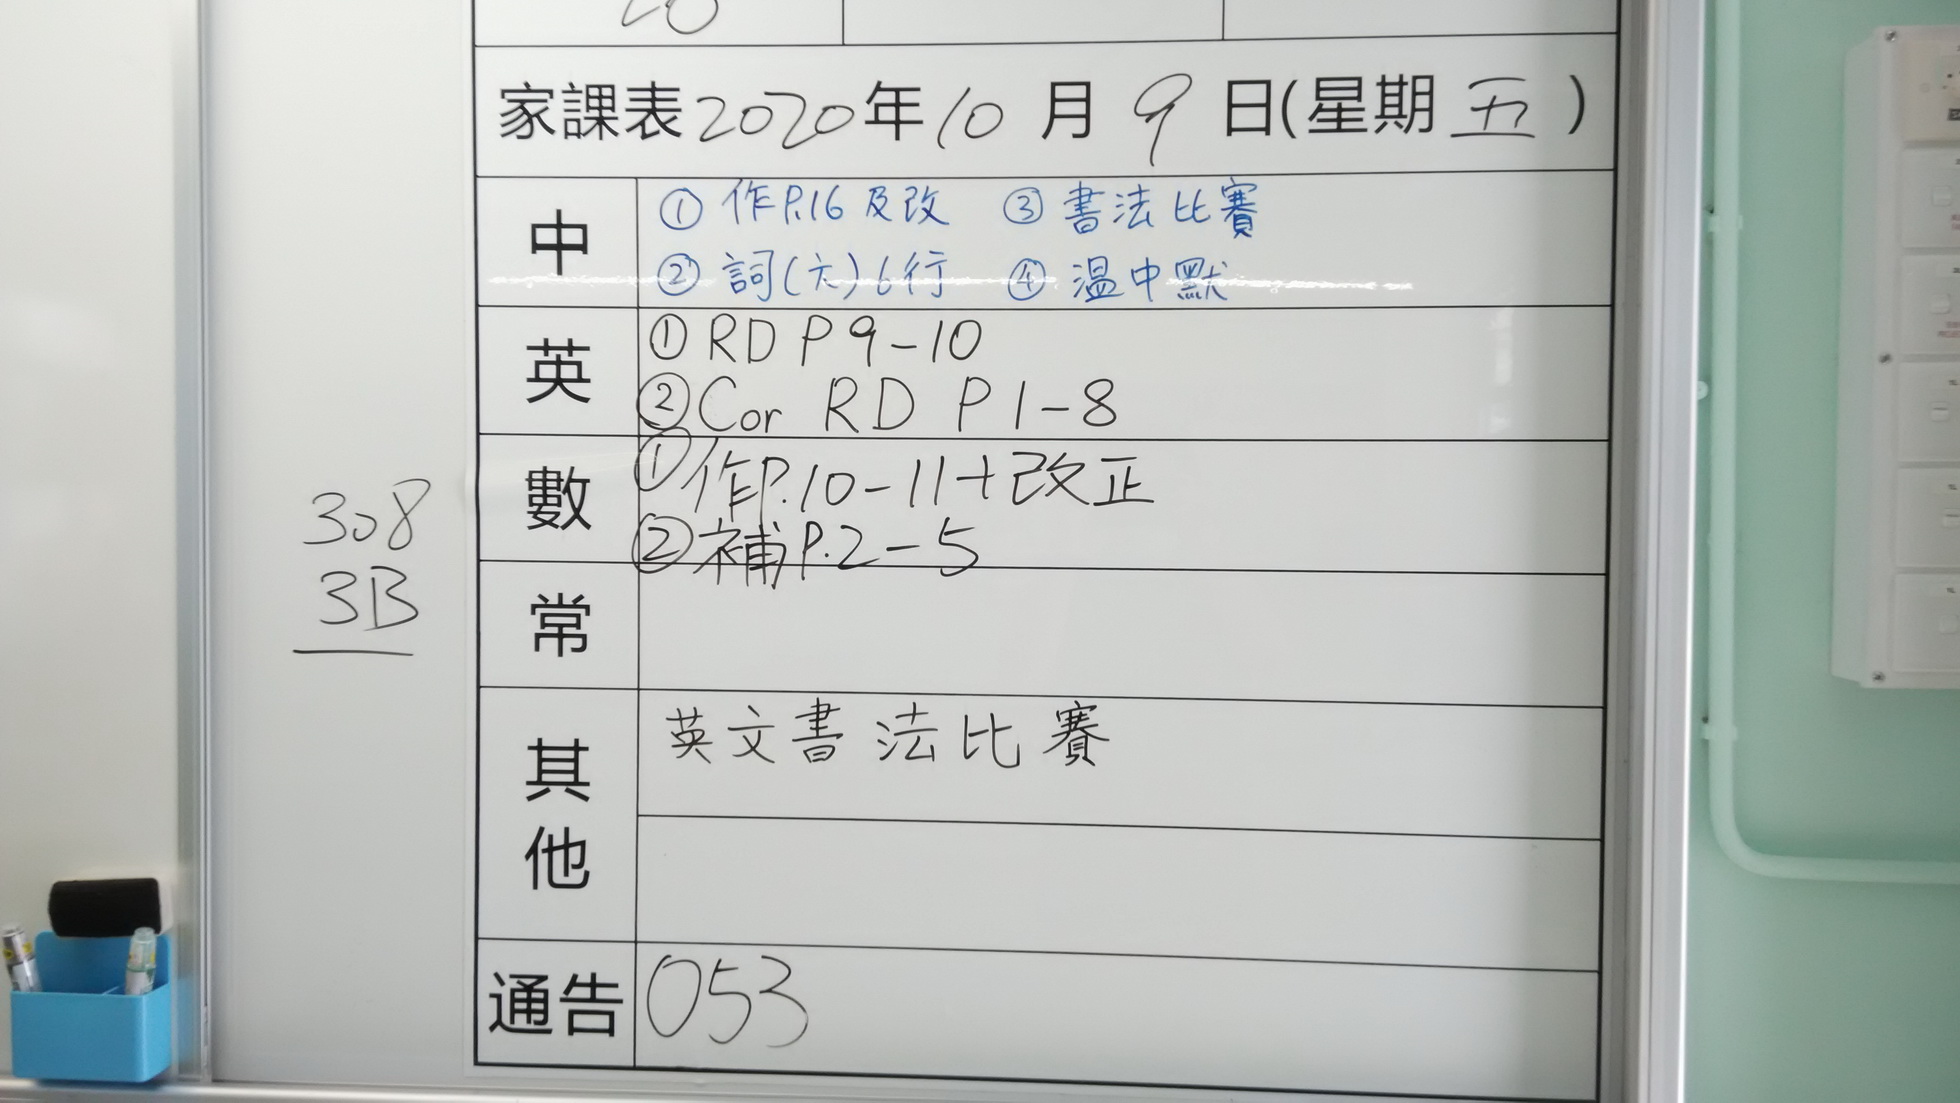 家課表2020年10月9日(星期五)
中
① 作P.16及改 ③ 書法比賽
② 詞(六)6行 ④ 溫中默
英
① RD P 9-10
② Cor RD P 1-8
數
① 作P.10-11+改正
② 補P.2-5
308
3B
常
其他
英文書法比賽
通告
053